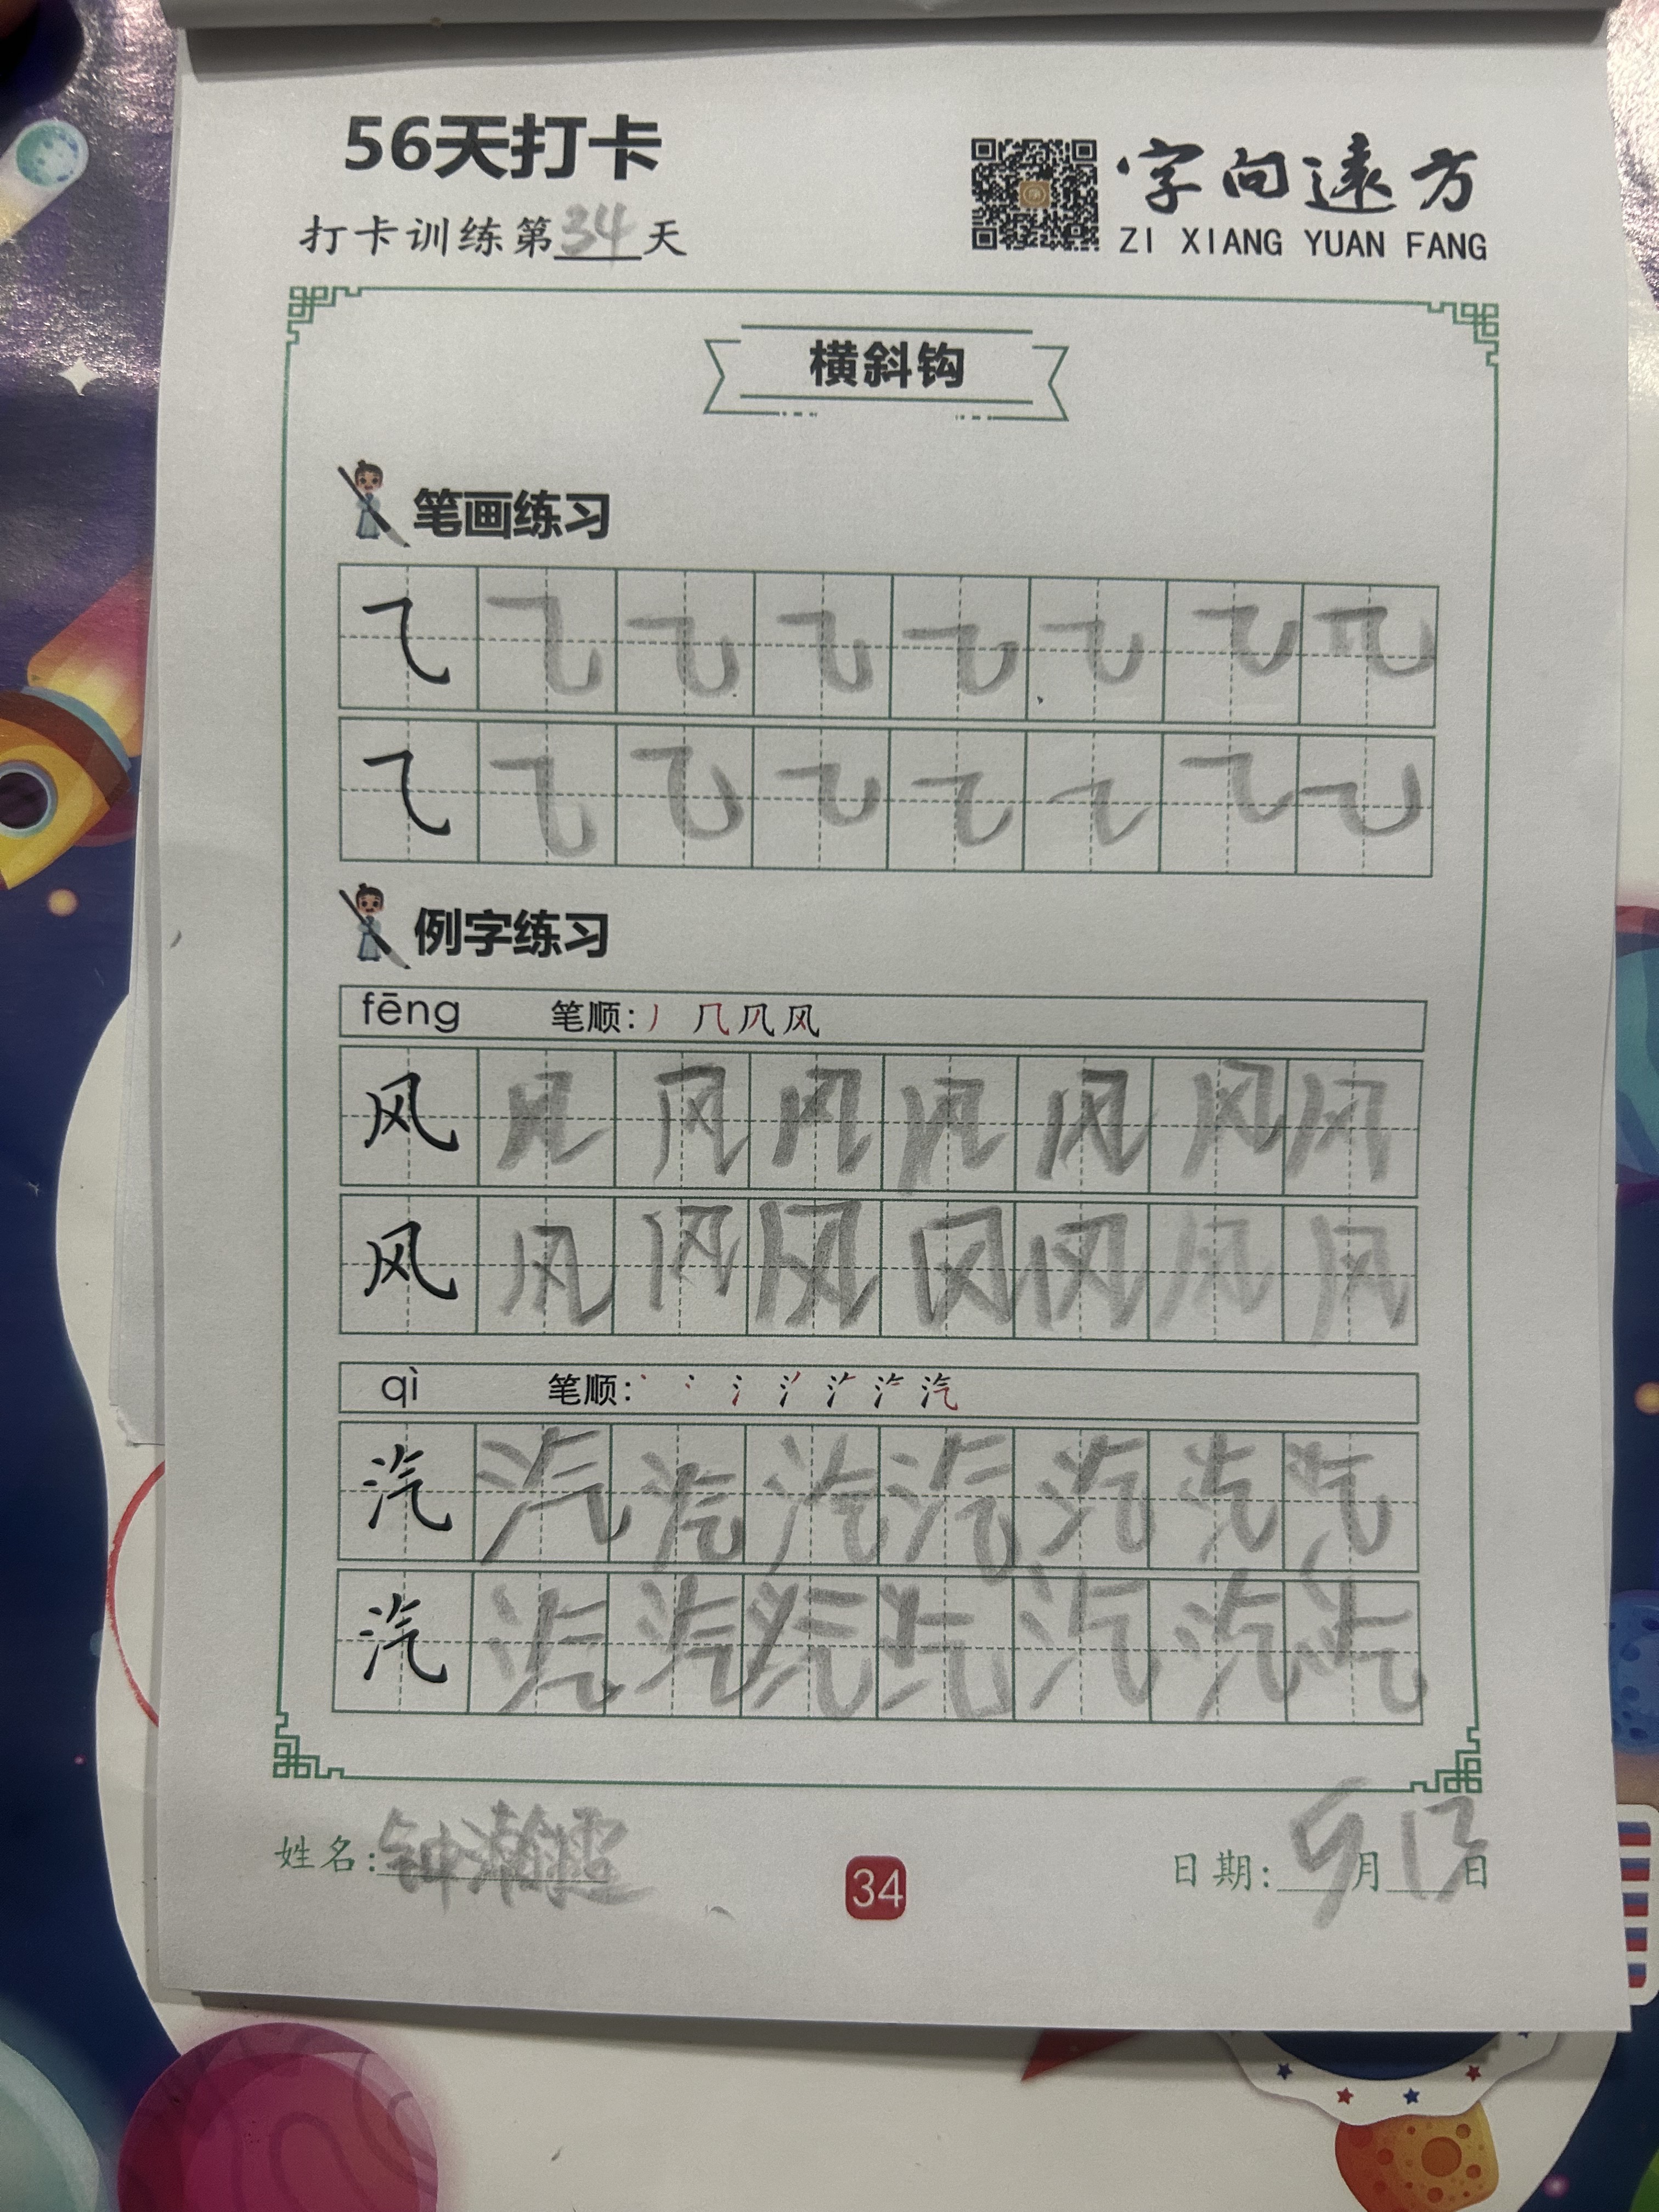 56天打卡
字向遠方
打卡训练第34天
ZI XIANG YUAN FANG
横斜钩
笔画练习
㇈ ㇈ ㇈ ㇈ ㇈ ㇈ ㇈ ㇈
㇈ ㇈ ㇈ ㇈ ㇈ ㇈ ㇈ ㇈
例字练习
fēng 笔顺: 丿 几 风 风
风 风 风 风 风 风 风 风
风 风 风 风 风 风 风 风
qì 笔顺: 汽
汽 汽 汽 汽 汽 汽 汽 汽
汽 汽 汽 汽 汽 汽 汽 汽
姓名:钟瀚霆
34
日期:9月13日